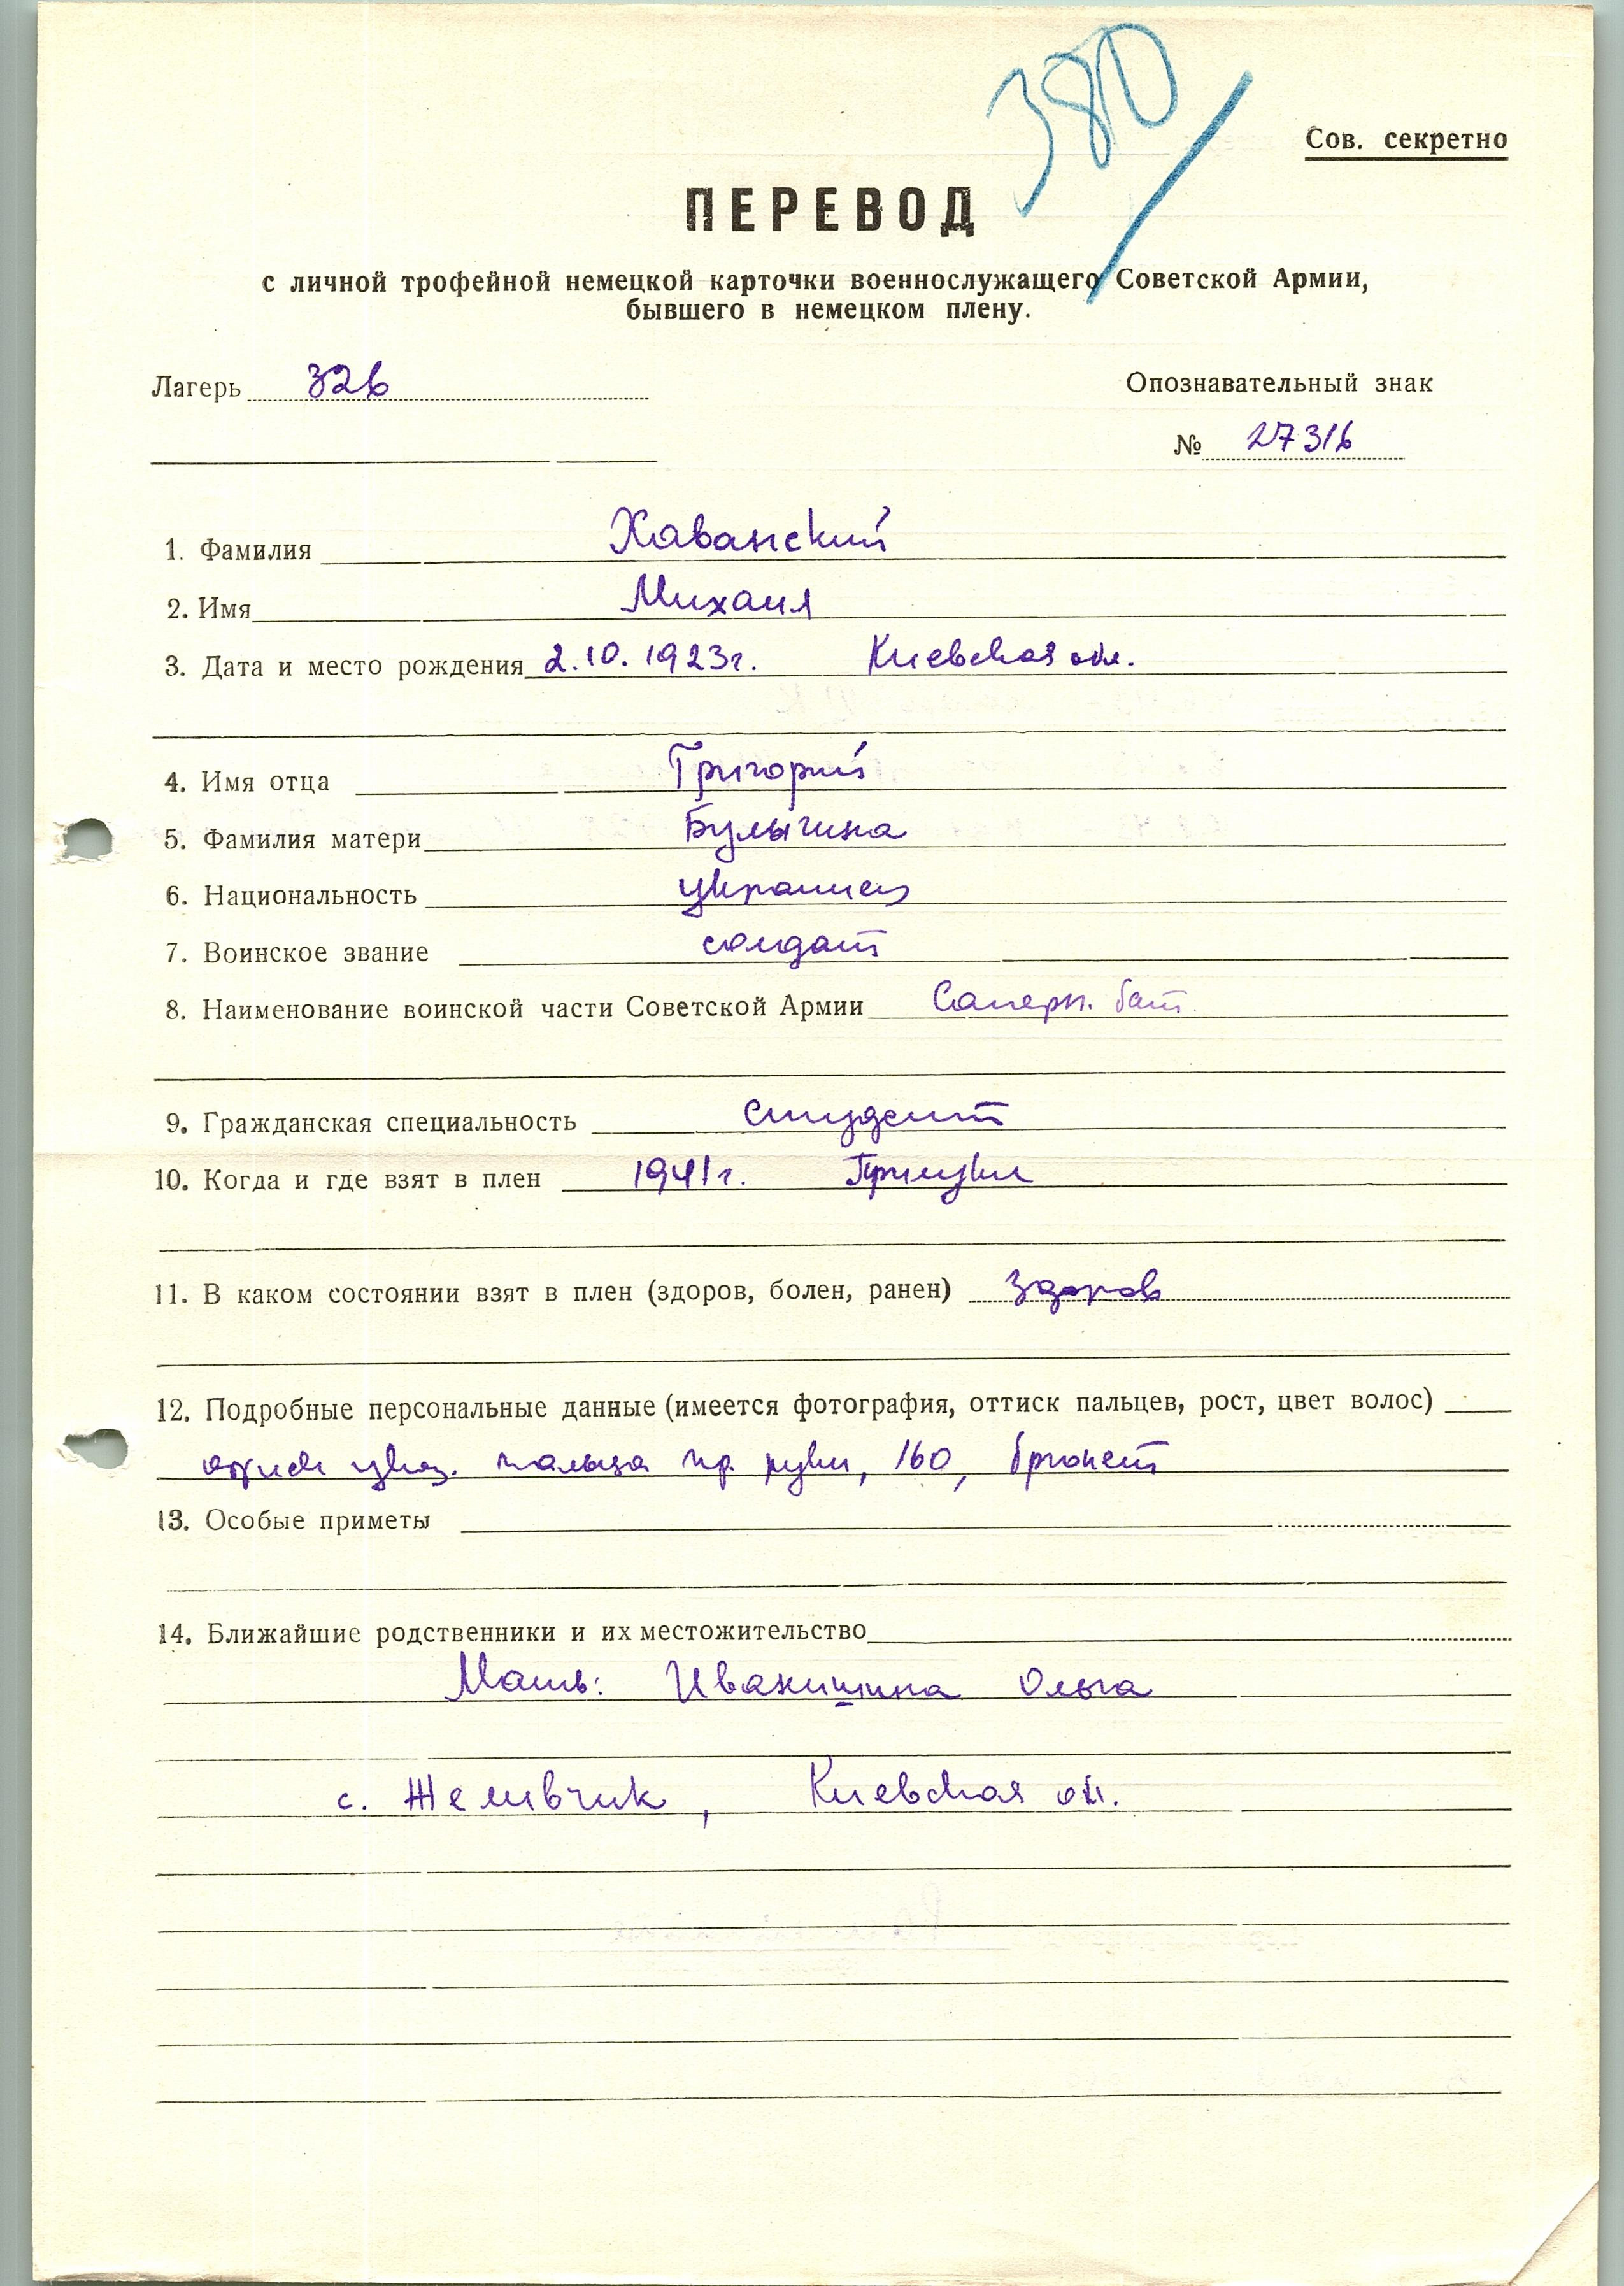 380
Сов. секретно
ПЕРЕВОД
с личной трофейной немецкой карточки военнослужащего Советской Армии,
бывшего в немецком плену.
Лагерь 326
Опознавательный знак
№ 27316
1. Фамилия Хаванский
2. Имя Михаил
3. Дата и место рождения 2.10.1923г. Киевская обл.
4. Имя отца Григорий
5. Фамилия матери Булыгина
6. Национальность украинец
7. Воинское звание солдат
8. Наименование воинской части Советской Армии Саперн. бат.
9. Гражданская специальность студент
10. Когда и где взят в плен 1941г. Прилуки
11. В каком состоянии взят в плен (здоров, болен, ранен) здоров
12. Подробные персональные данные (имеется фотография, оттиск пальцев, рост, цвет волос)
оттиск указ. пальца пр. руки, 160, брюнет
13. Особые приметы
14. Ближайшие родственники и их местожительство
Мать: Ивакишина Ольга
с. Желивчик, Киевская обл.